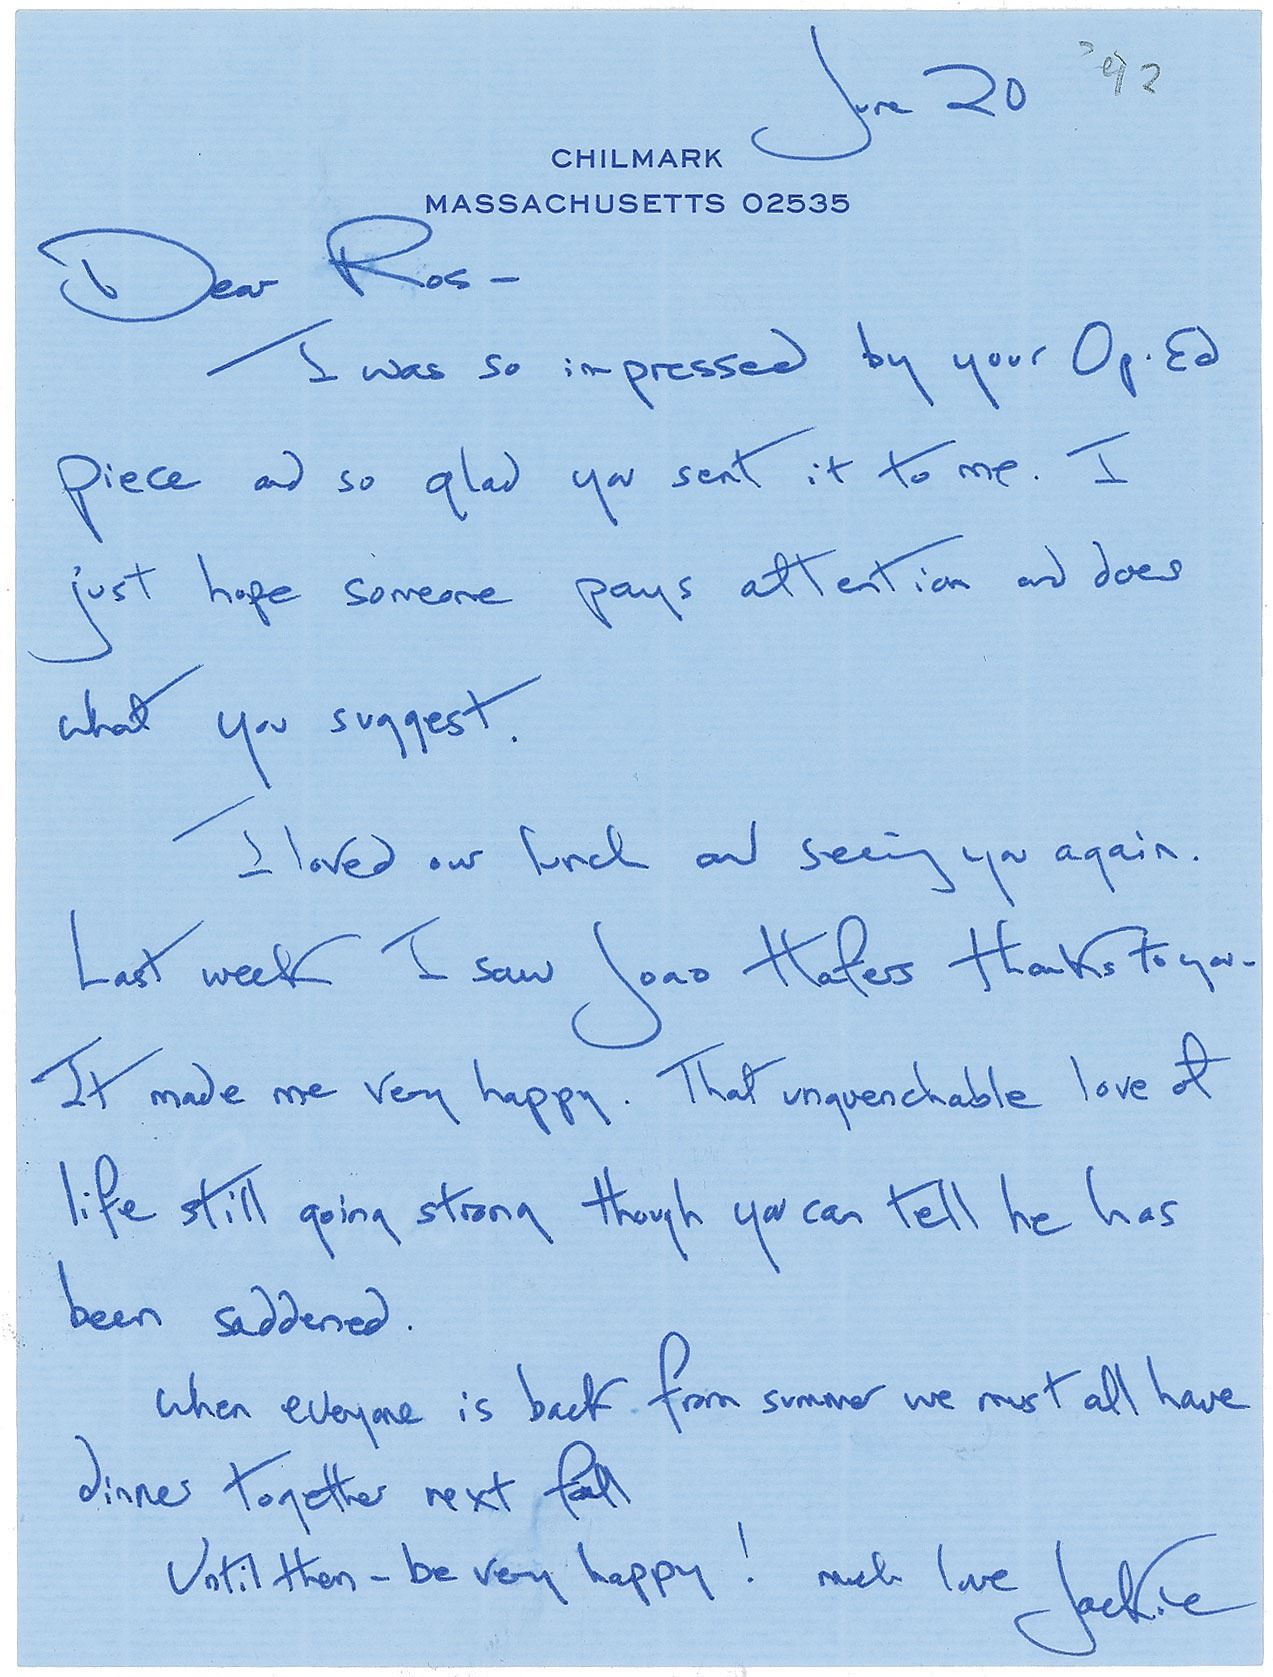 June 20 '92
CHILMARK
MASSACHUSETTS 02535
Dear Ros -
I was so impressed by your Op. Ed
piece and so glad you sent it to me. I
just hope someone pays attention and does
what you suggest.
I loved our lunch and seeing you again.
Last week I saw Joao thanks to you -
It made me very happy. That unquenchable love of
life still going strong though you can tell he has
been saddened.
When everyone is back from summer we must all have
dinner together next fall
Until then - be very happy! much love Jackie